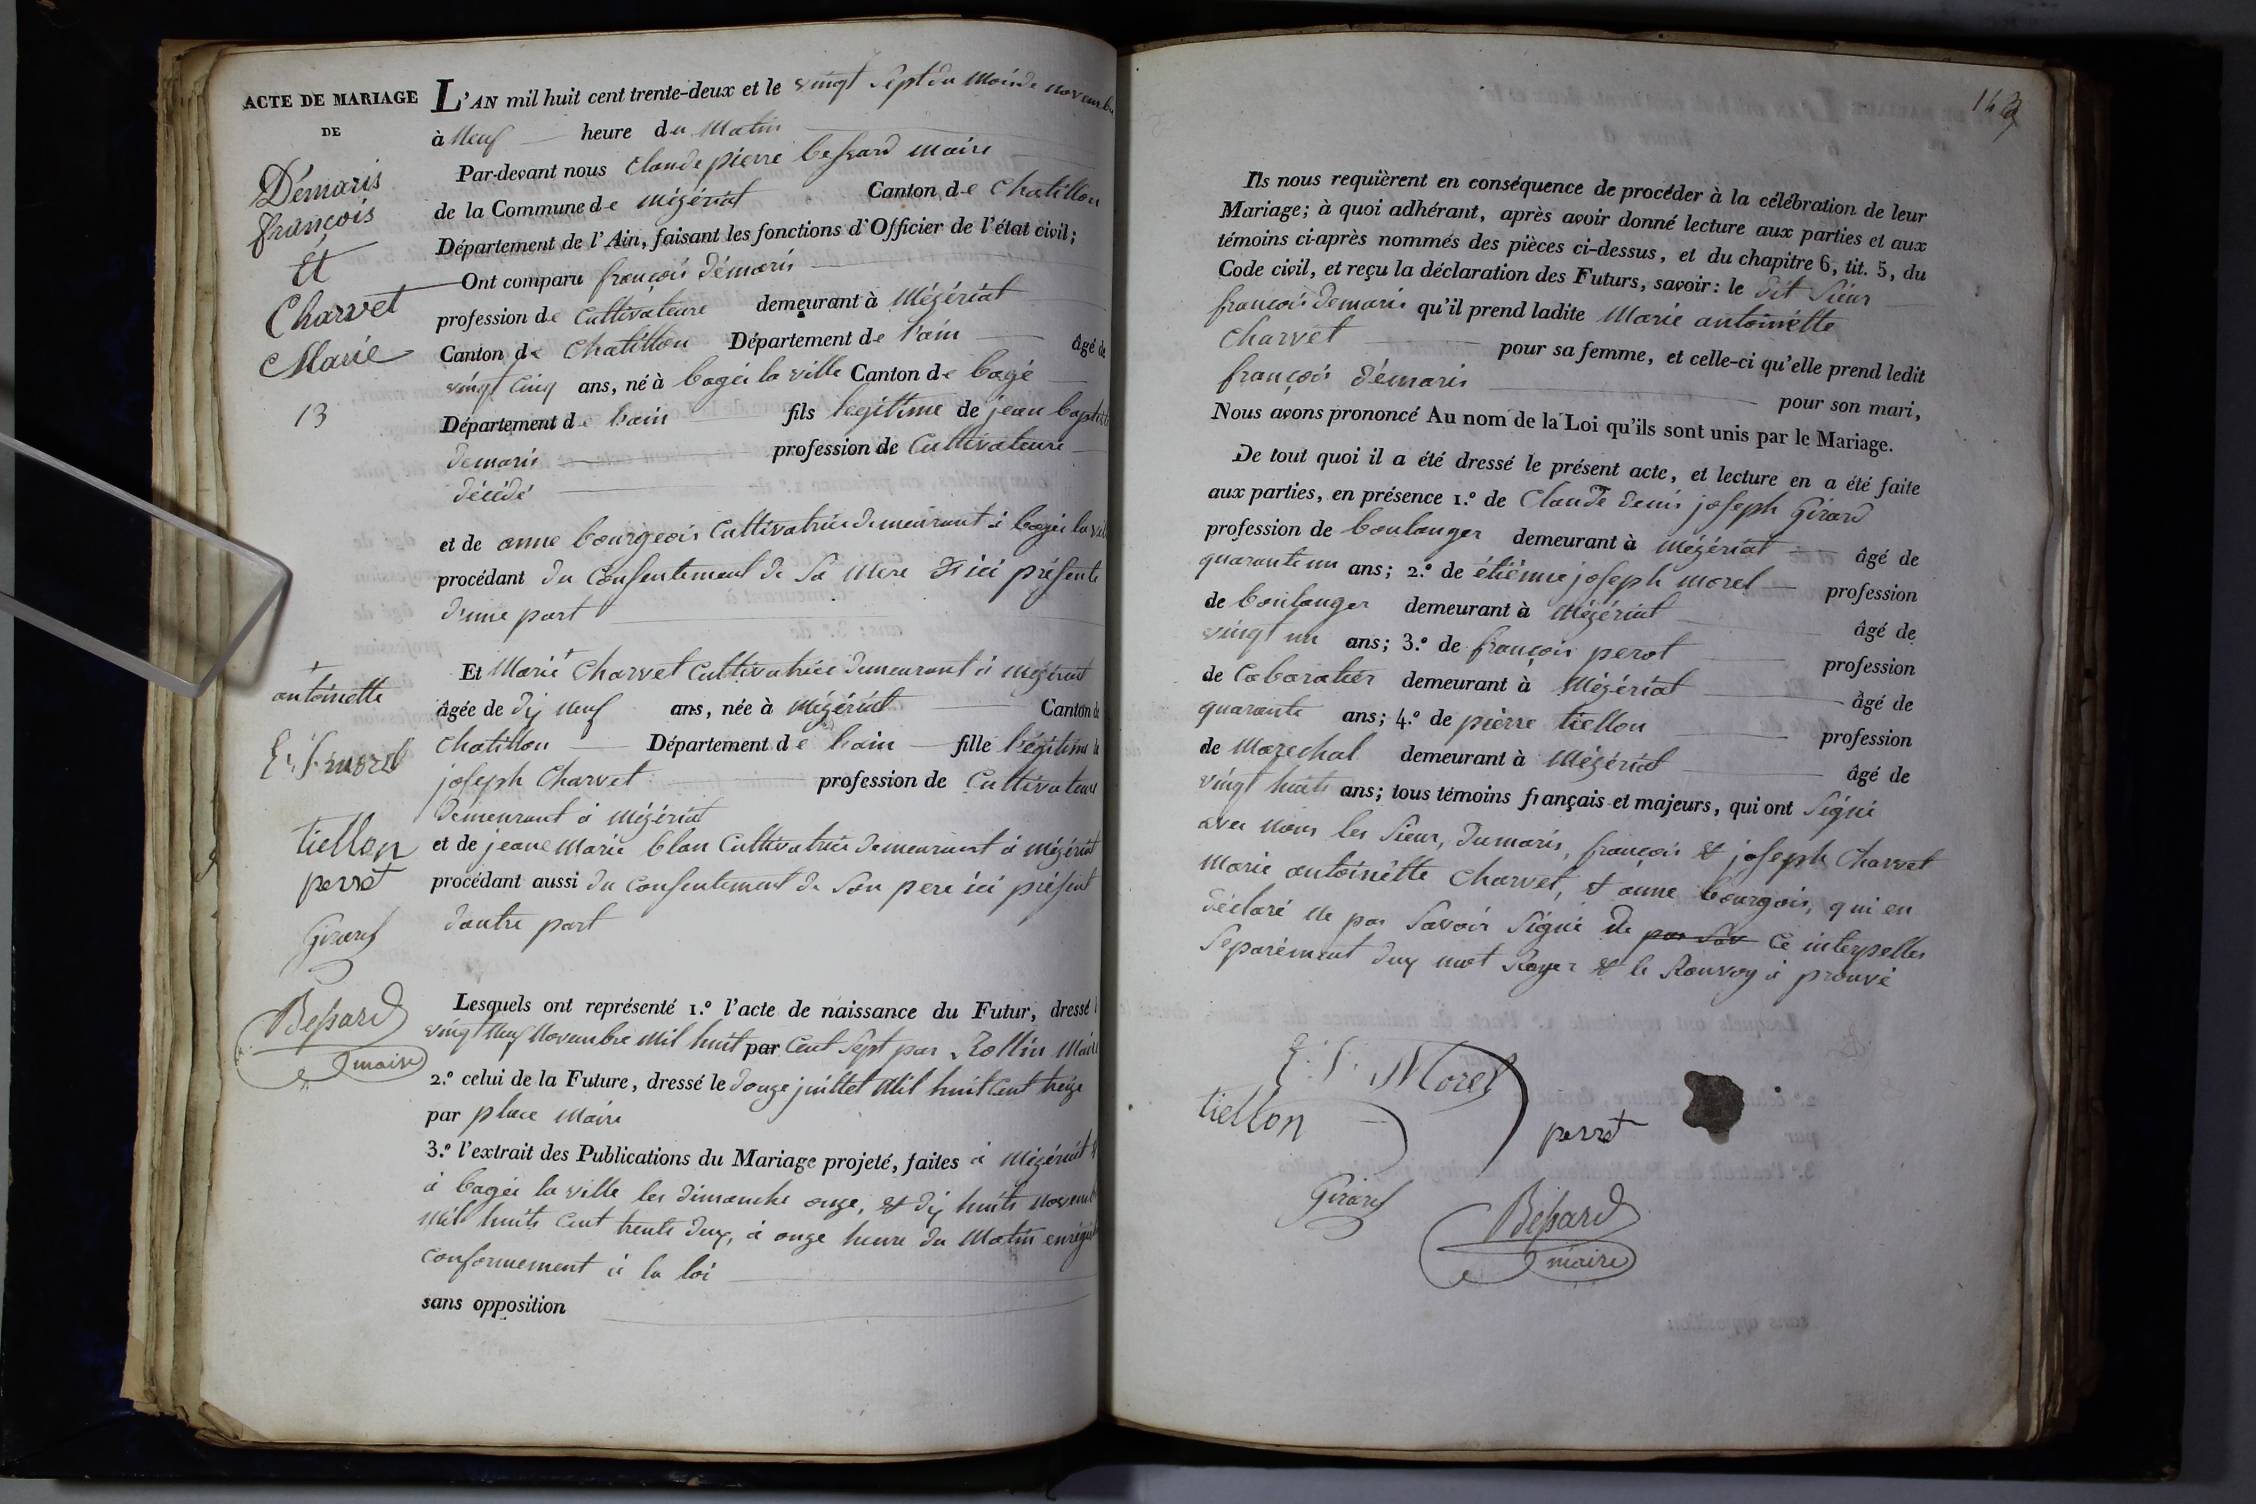 ACTE DE MARIAGE
DE
Démaris
françois
Et
Charvet
Marie
13
+
antoinette
E. J. morel
tiellon
perret
Girard
Bessard
maire
L'AN mil huit cent trente-deux et le vingt sept du Mois de novembre
à Neuf heure du Matin
Par-devant nous Claude pierre bessard maire
de la Commune de Mézériat Canton de Chatillon
Département de l'Ain, faisant les fonctions d'Officier de l'état civil;
Ont comparu françois démaris
profession de Cultivateure demeurant à Mézériat
Canton de Chatillon Département de l'ain âgé de
vingt Cinq ans, né à bagéi la ville Canton de bagé
Département de lain fils legitime de jean baptiste
demaris profession de Cultivateure
décédé
et de anne bourgeois Cultivatrice demeurant à bagéi la ville
procédant du Consentement de Sa Mere ici présente
d'une part
Et Marie + Charvet Cultivatrice demeurant à mézériat
âgée de dix neuf ans, née à Mézériat Canton de
Chatillon Département de lain fille légitime de
joseph Charvet profession de Cultivateur
demeurant à Mézériat
et de jeane Marie blan Cultivatrice demeurant à mézériat
procédant aussi du consentement de Son pere ici présent
dautre part
Lesquels ont représenté 1.° l'acte de naissance du Futur, dressé l
vingt Neuf Novembre Mil huit par Cent Sept par Rollin Maire
2.° celui de la Future, dressé le douze juillet Mil huit Cent treize
par place Maire
3.° l'extrait des Publications du Mariage projeté, faites à Mézériat &
à bagéi la ville les dimanche onze, et dix huits novemb
Mil huits Cent trente deux, à onze heure du Matin enrégist
conformement à la loi
sans opposition
143
Ils nous requièrent en conséquence de procéder à la célébration de leur
Mariage; à quoi adhérant, après avoir donné lecture aux parties et aux
témoins ci-après nommés des pièces ci-dessus, et du chapitre 6, tit. 5, du
Code civil, et reçu la déclaration des Futurs, savoir: le dit Sieur
françois demaris qu'il prend ladite Marie antoinette
Charvet pour sa femme, et celle-ci qu'elle prend ledit
françois démaris pour son mari,
Nous avons prononcé Au nom de la Loi qu'ils sont unis par le Mariage.
De tout quoi il a été dressé le présent acte, et lecture en a été faite
aux parties, en présence 1.° de Claude denis joseph Girard
profession de boulanger demeurant à Mézériat âgé de
quarante un ans; 2.° de étiénne joseph morel profession
de boulanger demeurant à Mézériat âgé de
vingt un ans; 3.° de françois perot profession
de Cabaratier demeurant à Mézériat âgé de
quarante ans; 4.° de pièrre tiellon profession
de Marechal demeurant à Mézériat âgé de
vingt huits ans; tous témoins français et majeurs, qui ont Signé
avec nous les Sieur, dumaris, françois & joseph Charvet
Marie antoinètte Charvet, & anne bourgois, qui en
déclaré ne pas Savoir Signé De pas Sav Ce interpelles
Separément dux mot Rayer & le Ranvoy à prouvé
E. J. Morel
tiellon
perret
Girard
Bessard
maire